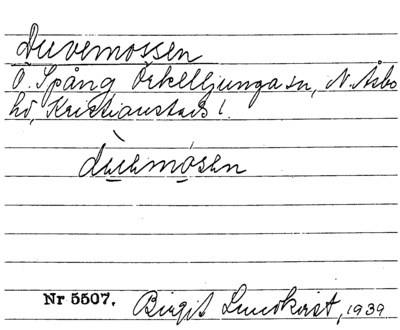 Duvemossen
Ö. Spång Örkelljunga sn, N. Åsbo
hd, Kristianstads l.
Nr 5507. Birgit Lundkvist, 1939